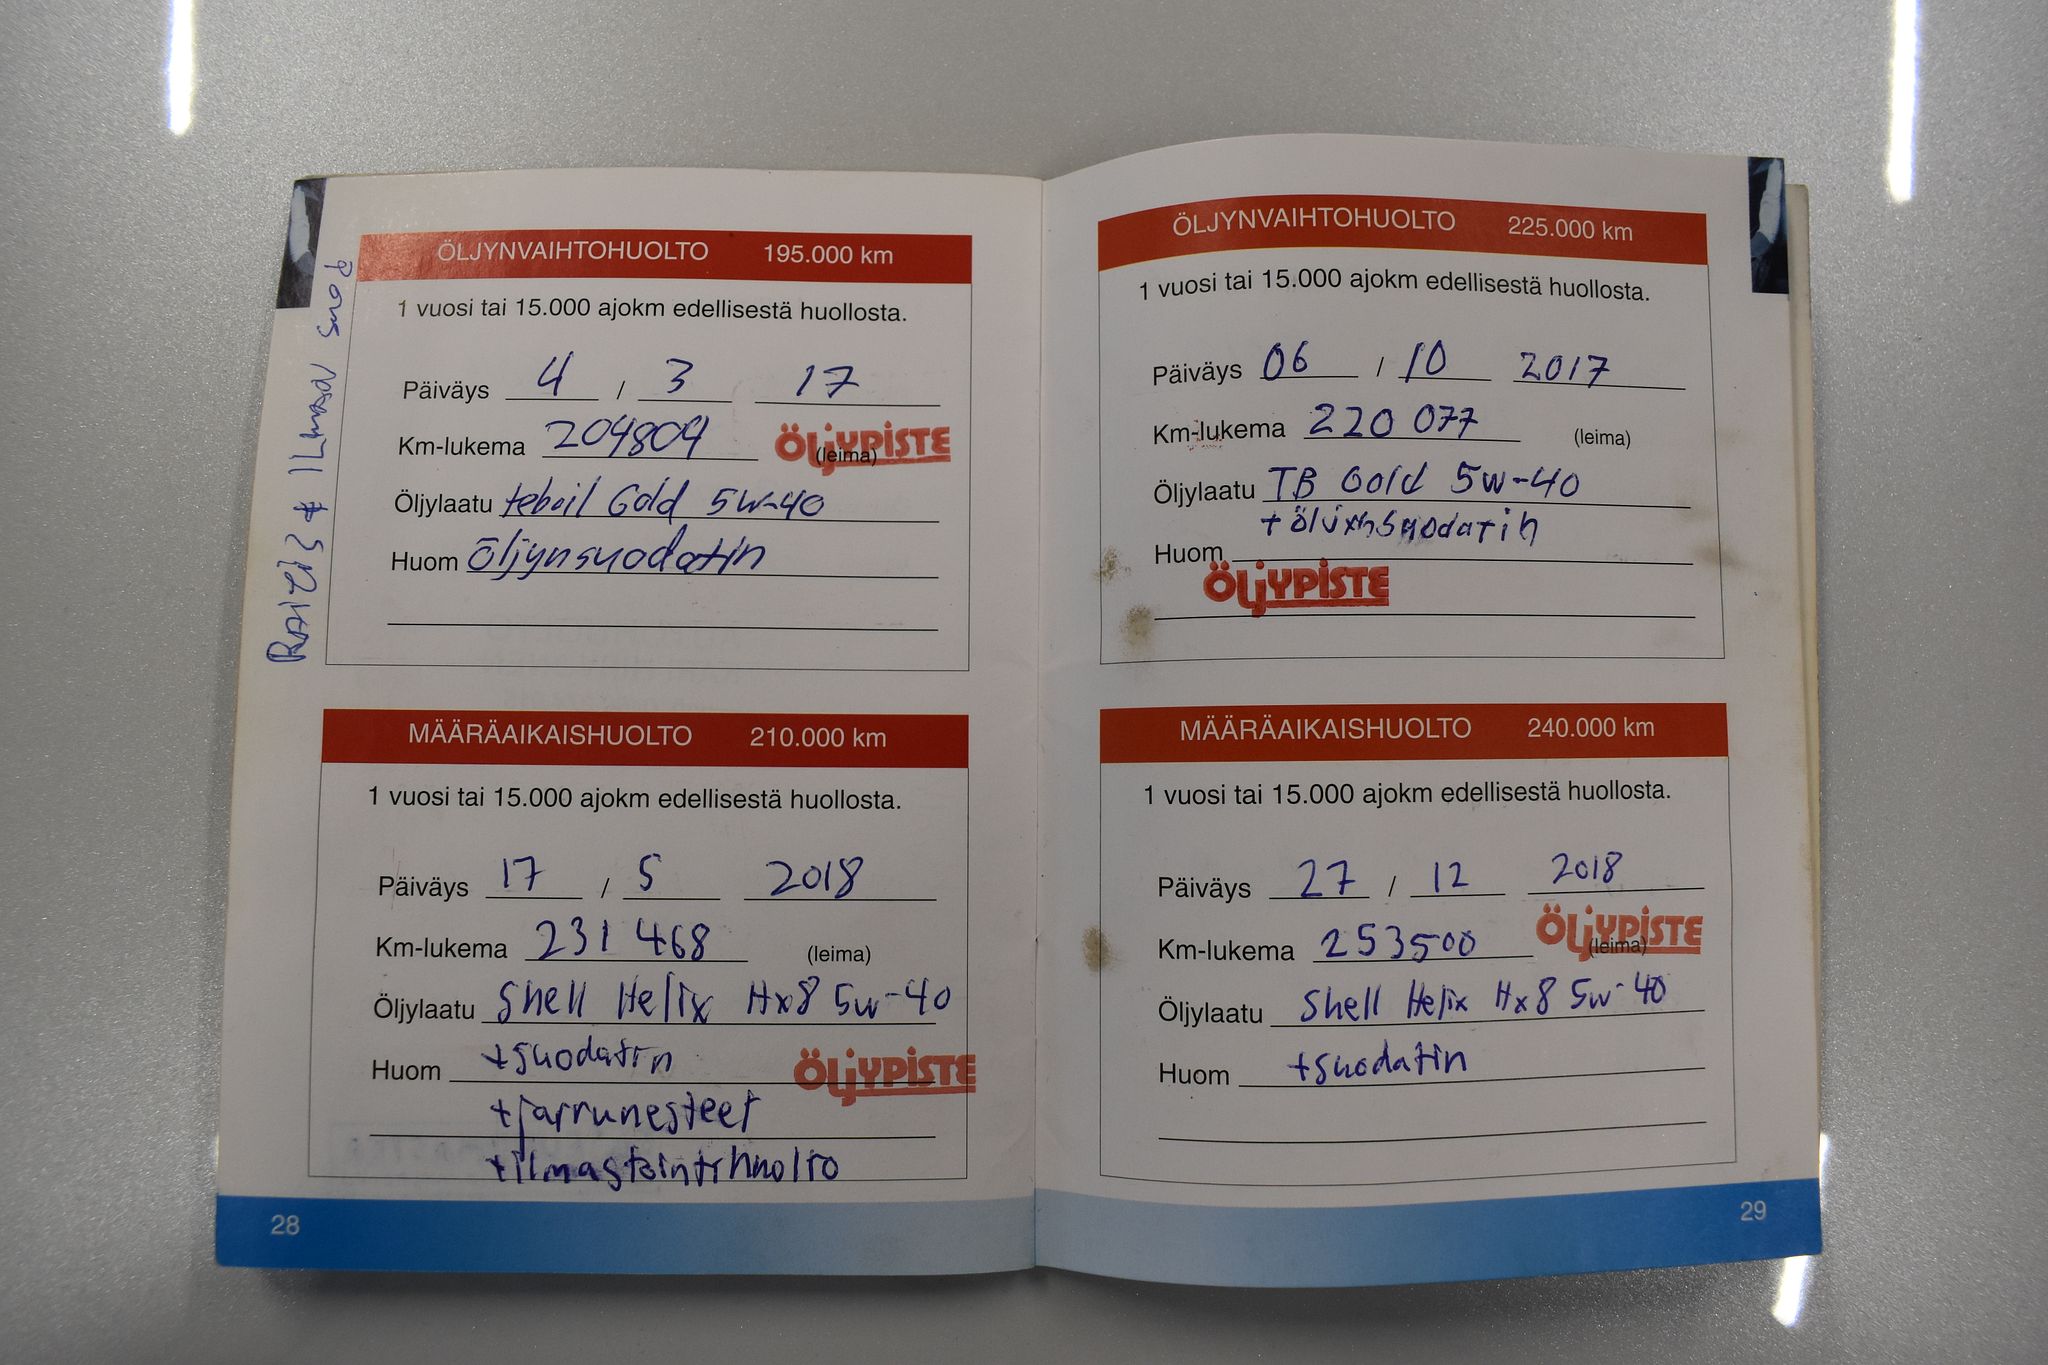 ÖLJYNVAIHTOHUOLTO 195.000 km
1 vuosi tai 15.000 ajokm edellisestä huollosta.
Päiväys 4 / 3 17
Km-lukema 204804 ÖLJYPISTE (leima)
Öljylaatu teboil Gold 5w-40
Huom Öljynsuodatin
ILMAN suod
MÄÄRÄAIKAISHUOLTO 210.000 km
1 vuosi tai 15.000 ajokm edellisestä huollosta.
Päiväys 17 / 5 2018
Km-lukema 231 468 (leima)
Öljylaatu Shell Helix Hx8 5w-40
Huom +suodatin ÖLJYPISTE
+jarrunesteet
+ilmastointihuolto
28
ÖLJYNVAIHTOHUOLTO 225.000 km
1 vuosi tai 15.000 ajokm edellisestä huollosta.
Päiväys 06 / 10 2017
Km-lukema 220 077 (leima)
Öljylaatu TB Gold 5w-40
+ölynsuodatin
Huom
ÖLJYPISTE
MÄÄRÄAIKAISHUOLTO 240.000 km
1 vuosi tai 15.000 ajokm edellisestä huollosta.
Päiväys 27 / 12 2018
Km-lukema 253500 ÖLJYPISTE (leima)
Öljylaatu Shell Helix Hx8 5w-40
Huom +suodatin
29